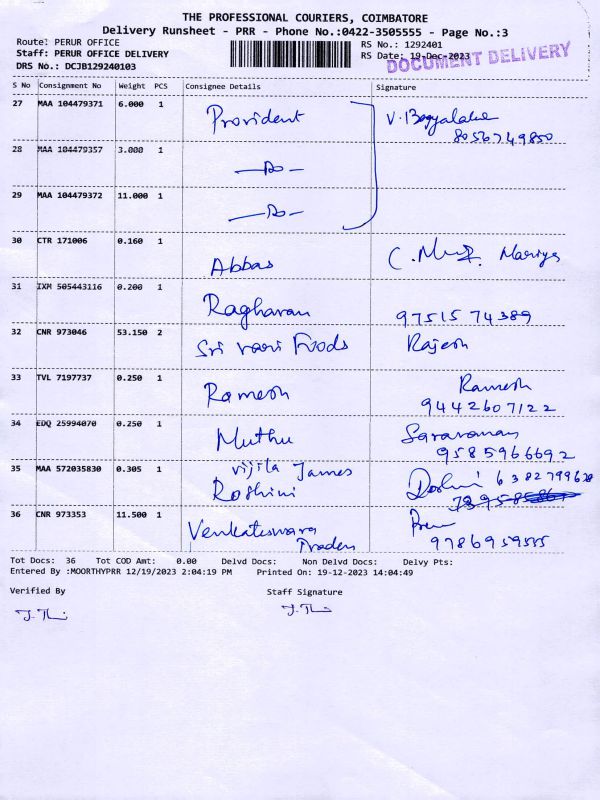 THE PROFESSIONAL COURIERS, COIMBATORE
Delivery Runsheet - PRR - Phone No.:0422-3505555 - Page No.:3
Route: PERUR OFFICE RS No.: 1292401
Staff: PERUR OFFICE DELIVERY RS Date: 19-Dec-2023
DOCUMENT DELIVERY
DRS No.: DCJB129240103
S No Consignment No Weight PCS Consignee Details Signature
27 MAA 104479371 6.000 1 Provident V. Bagyalake
8056749850
28 MAA 104479357 3.000 1 —Do—
29 MAA 104479372 11.000 1 —Do—
30 CTR 171006 0.160 1 Abbas Mariya
31 IXM 505443116 0.200 1 Ragharan 9751574389
32 CNR 973046 53.150 2 Sri vari Foods Rajesh
33 TVL 7197737 0.250 1 Ramesh Ramesh
9442607122
34 EDQ 25994070 0.250 1 Muthu Saravanan
9585966692
35 MAA 572035830 0.305 1 vijila James
Roshini Roshni
36 CNR 973353 11.500 1 Venkateswara
Traders 9786959555
Tot Docs: 36 Tot COD Amt: 0.00 Delvd Docs: Non Delvd Docs: Delvy Pts:
Entered By :MOORTHYPRR 12/19/2023 2:04:19 PM Printed On: 19-12-2023 14:04:49
Verified By Staff Signature